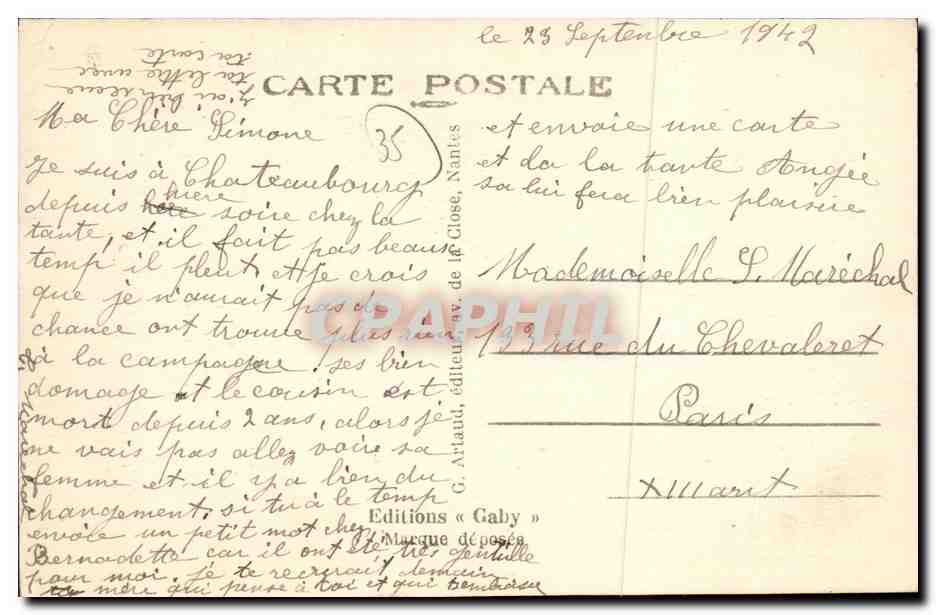 le 23 Septenbre 1942
j'ai bien reçue
ta lettre avec
ta carte
CARTE POSTALE
35
Ma Chère Simone
Je suis à Chateaubourg
depuis hiere soire chez la
tante, et il fait pas beaux
temp il pleut, et je crois
que je n'aurait pas de
chance ont trouve plus rien
à la campagne. ses bien
domage et le cousin est
mort depuis 2 ans, alors je
ne vais pas allez voire sa
femme et il y a bien du
changement, si tu à le temp
envoie un petit mot chez
Bernadette car il ont été, très gentille
pour moi. je te recrirait demain
ta mère qui pense à toi et qui t'embrasse
S. Marechal
et envoie une carte
et da la tante Angèe
sa lui fera bien plaisire
Mademoiselle S. Maréchal
133 rue du Chevaleret
Paris
XIII arit
G. Artaud, éditeur, av. de la Close, Nantes
Editions « Gaby »
Marque déposée
CPAPHIL